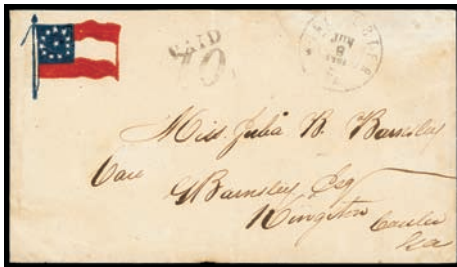 PAID
10
Miss Julia B. Barnsley
Care
G Barnsley Esq
Kingston
Ga